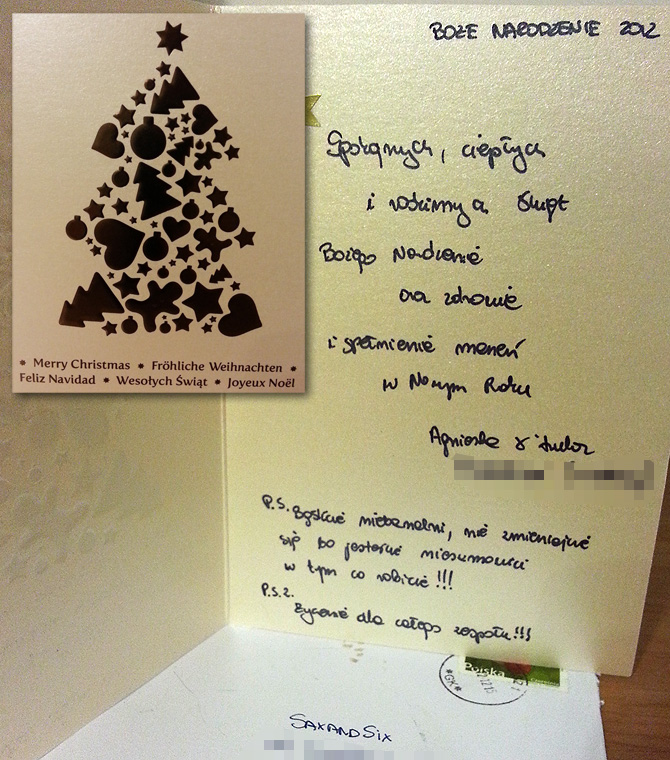 BOŻE NARODZENIE 2012
Spokojnych, ciepłych
i rodzinnych Świąt
Bożego Narodzenia
oraz zdrowie
i spełnienie marzeń
w Nowym Roku
Agnieszka &
P.S. Bądźcie niebanalni, nie zmieniajcie
się bo jesteście niesamowici
w tym co robicie !!!
P.S.2.
Życzenia dla całego zespołu!!!
* Merry Christmas * Fröhliche Weihnachten *
Feliz Navidad * Wesołych Świąt * Joyeux Noël
Polska
SAXANDSIX